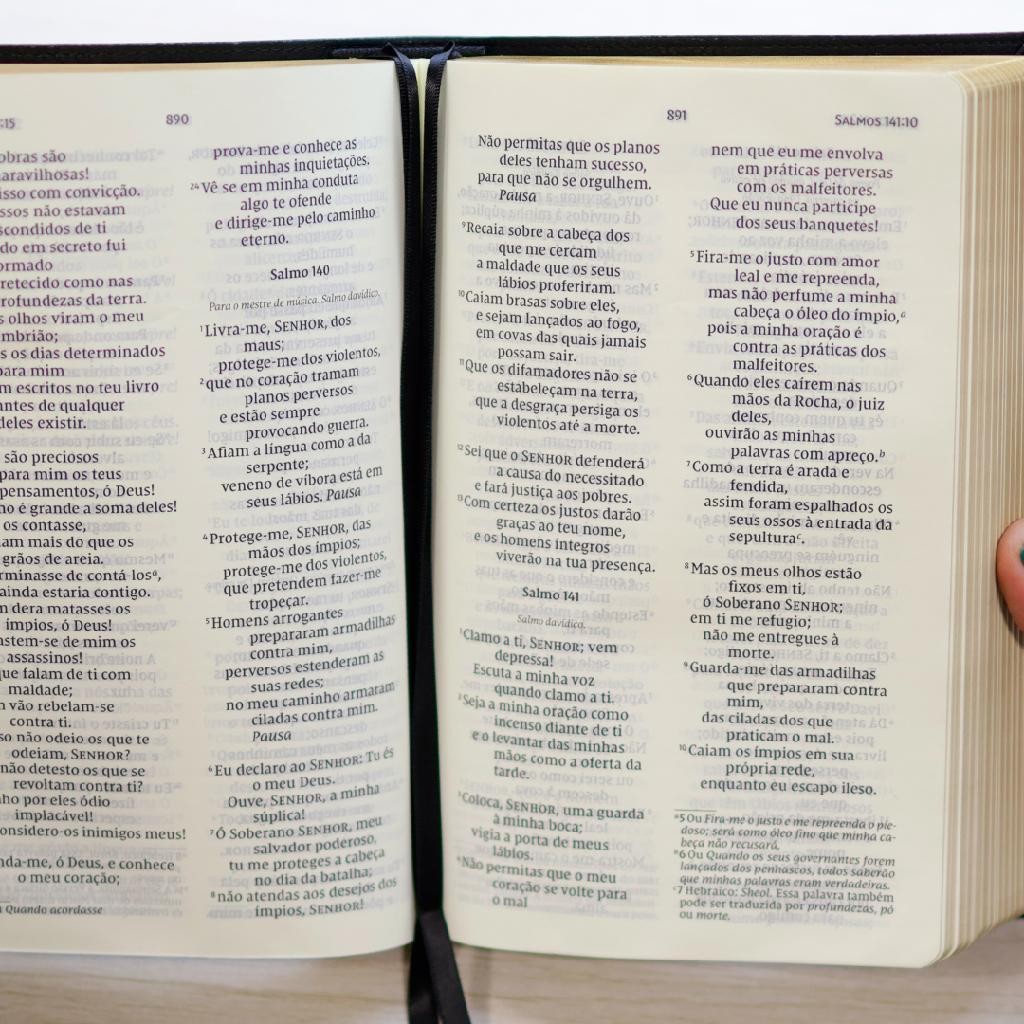 :15
890
obras são
maravilhosas!
isso com convicção.
ossos não estavam
scondidos de ti
do em secreto fui
ormado
retecido como nas
rofundezas da terra.
s olhos viram o meu
mbrião;
s os dias determinados
para mim
m escritos no teu livro
antes de qualquer
deles existir.
são preciosos
para mim os teus
pensamentos, ó Deus!
no é grande a soma deles!
os contasse,
iam mais do que os
grãos de areia.
rminasse de contá-losᵃ,
ainda estaria contigo.
m dera matasses os
ímpios, ó Deus!
astem-se de mim os
assassinos!
ue falam de ti com
maldade;
m vão rebelam-se
contra ti.
so não odeio os que te
odeiam, SENHOR?
não detesto os que se
revoltam contra ti?
nho por eles ódio
implacável!
onsidero-os inimigos meus!
nda-me, ó Deus, e conhece
o meu coração;
Quando acordasse
prova-me e conhece as
minhas inquietações.
²⁴Vê se em minha conduta
algo te ofende
e dirige-me pelo caminho
eterno.
Salmo 140
Para o mestre de música. Salmo davídico.
¹Livra-me, SENHOR, dos
maus;
protege-me dos violentos,
²que no coração tramam
planos perversos
e estão sempre
provocando guerra.
³Afiam a língua como a da
serpente;
veneno de víbora está em
seus lábios. Pausa
⁴Protege-me, SENHOR, das
mãos dos ímpios;
protege-me dos violentos,
que pretendem fazer-me
tropeçar.
⁵Homens arrogantes
prepararam armadilhas
contra mim,
perversos estenderam as
suas redes;
no meu caminho armaram
ciladas contra mim.
Pausa
⁶Eu declaro ao SENHOR: Tu és
o meu Deus.
Ouve, SENHOR, a minha
súplica!
⁷Ó Soberano SENHOR, meu
salvador poderoso,
tu me proteges a cabeça
no dia da batalha;
⁸não atendas aos desejos dos
ímpios, SENHOR!
891
SALMOS 141:10
Não permitas que os planos
deles tenham sucesso,
para que não se orgulhem.
Pausa
⁹Recaia sobre a cabeça dos
que me cercam
a maldade que os seus
lábios proferiram.
¹⁰Caiam brasas sobre eles,
e sejam lançados ao fogo,
em covas das quais jamais
possam sair.
¹¹Que os difamadores não se
estabeleçam na terra,
que a desgraça persiga os
violentos até a morte.
¹²Sei que o SENHOR defenderá
a causa do necessitado
e fará justiça aos pobres.
¹³Com certeza os justos darão
graças ao teu nome,
e os homens íntegros
viverão na tua presença.
Salmo 141
Salmo davídico.
¹Clamo a ti, SENHOR; vem
depressa!
Escuta a minha voz
quando clamo a ti.
²Seja a minha oração como
incenso diante de ti
e o levantar das minhas
mãos como a oferta da
tarde.
³Coloca, SENHOR, uma guarda
à minha boca;
vigia a porta de meus
lábios.
⁴Não permitas que o meu
coração se volte para
o mal
nem que eu me envolva
em práticas perversas
com os malfeitores.
Que eu nunca participe
dos seus banquetes!
⁵Fira-me o justo com amor
leal e me repreenda,
mas não perfume a minha
cabeça o óleo do ímpio,ᵃ
pois a minha oração é
contra as práticas dos
malfeitores.
⁶Quando eles caírem nas
mãos da Rocha, o juiz
deles,
ouvirão as minhas
palavras com apreço.ᵇ
⁷Como a terra é arada e
fendida,
assim foram espalhados os
seus ossos à entrada da
sepulturaᶜ.
⁸Mas os meus olhos estão
fixos em ti,
ó Soberano SENHOR;
em ti me refugio;
não me entregues à
morte.
⁹Guarda-me das armadilhas
que prepararam contra
mim,
das ciladas dos que
praticam o mal.
¹⁰Caiam os ímpios em sua
própria rede,
enquanto eu escapo ileso.
ᵃ5 Ou Fira-me o justo e me repreenda o pie-
doso; será como óleo fino que minha ca-
beça não recusará,
ᵇ6 Ou Quando os seus governantes forem
lançados dos penhascos, todos saberão
que minhas palavras eram verdadeiras.
ᶜ7 Hebraico: Sheol. Essa palavra também
pode ser traduzida por profundezas, pó
ou morte.